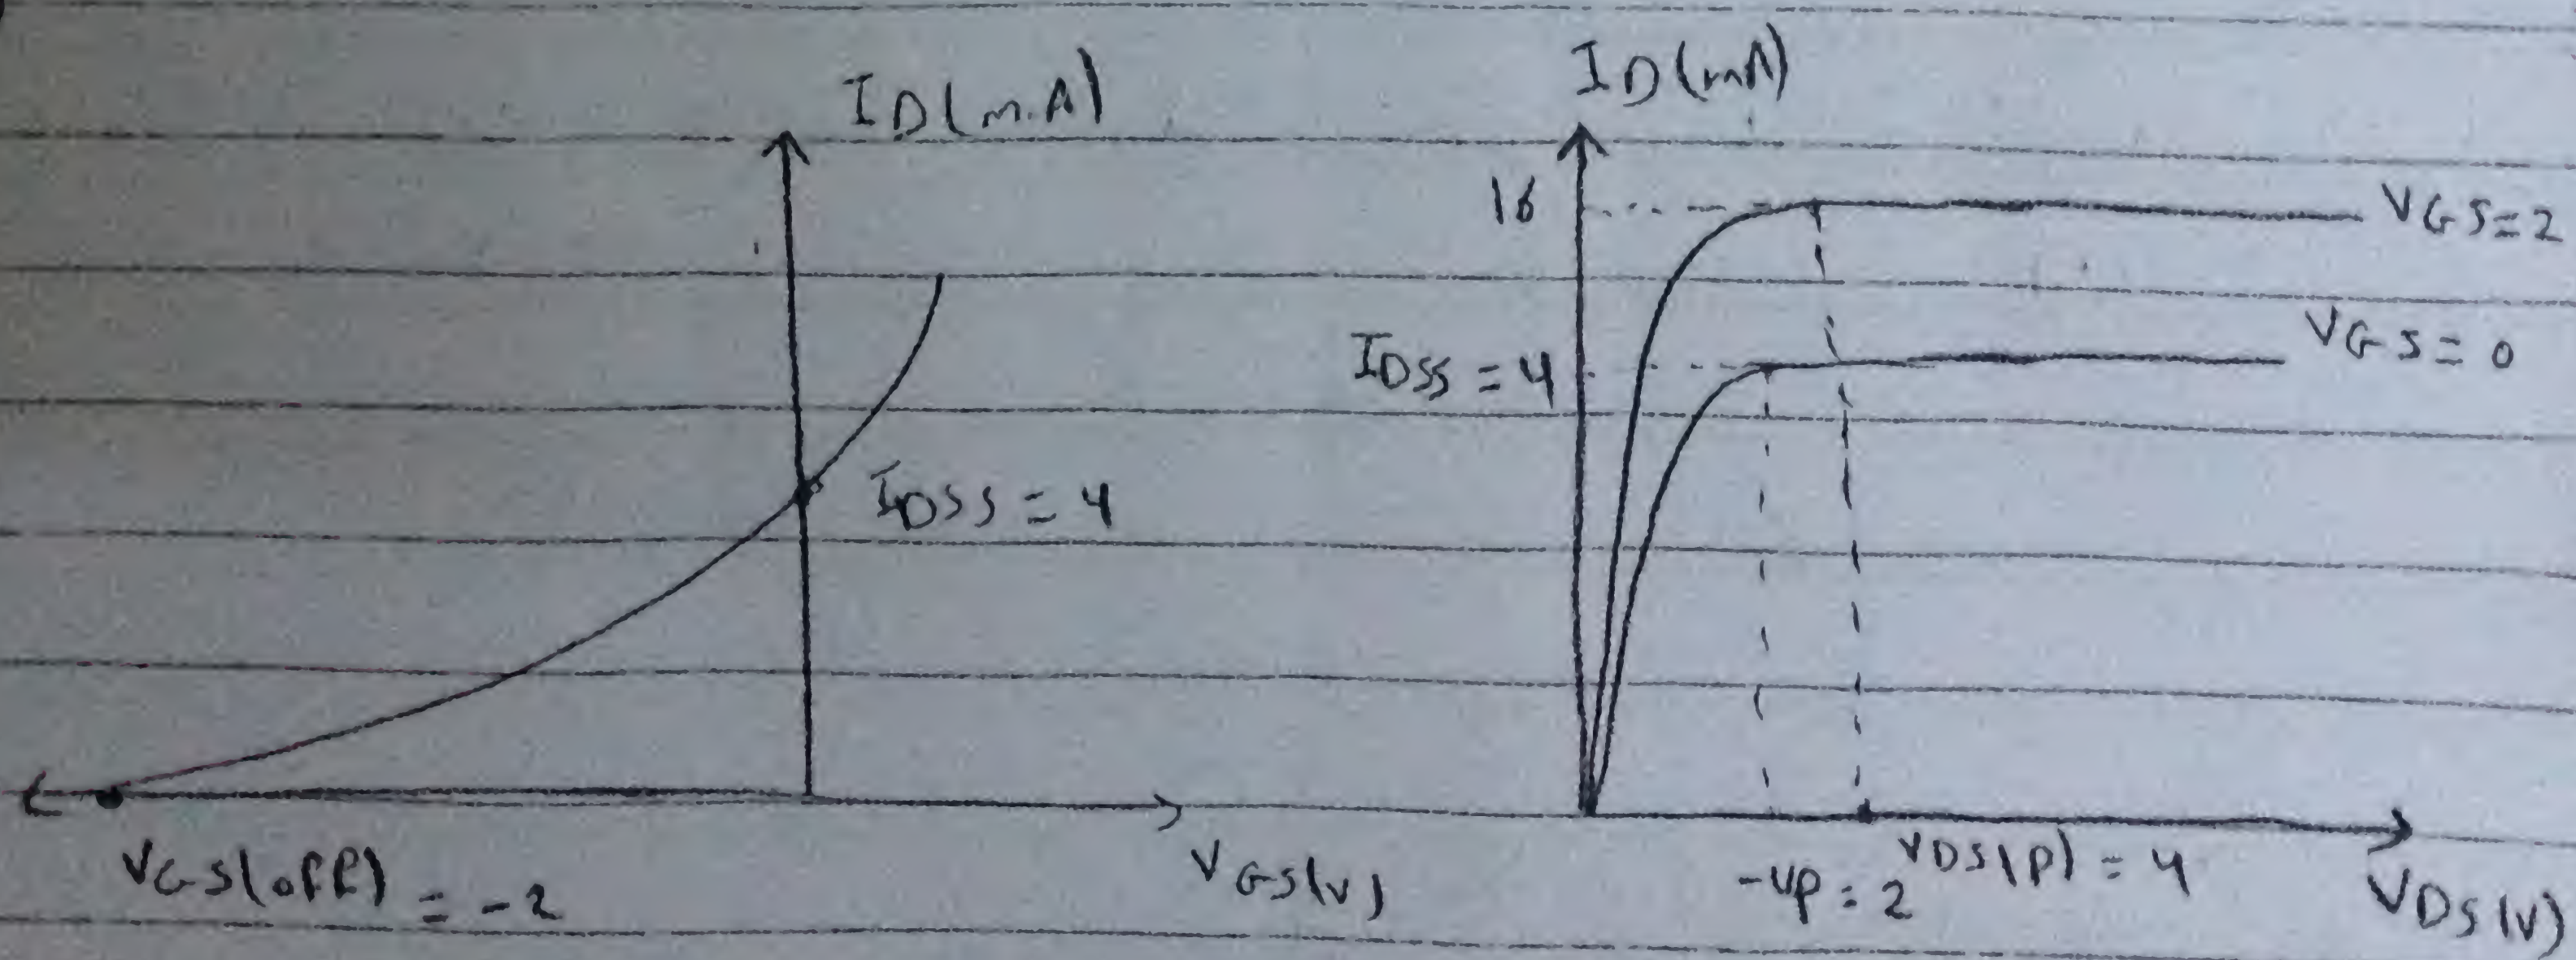 ID(mA)
IDSS = 4
VGS(off) = -2
VGS(v)
ID(mA)
16
VGS=2
IDSS = 4
VGS=0
-VP=2
VDS(P)=4
VDS(v)